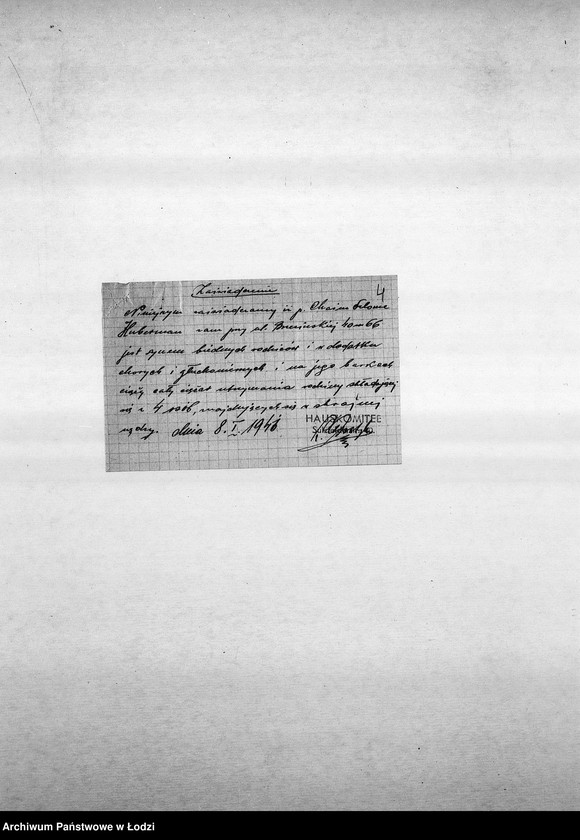 4
Zaświadczenie
Niniejszym zaświadczamy iż p. Chaim Szlama
Huberman zam przy ul. Brzezińskiej 40 m 66
jest synem biednych rodziców i z dodatku
chorych i głuchoniemych i na jego barkach
ciąży cały ciężar utrzymania rodziny składającej
się z 4 osób, znajdujących się w skrajnej
nędzy. dnia 8. I. 1940.
HAUSKOMITEE
Archiwum Państwowe w Łodzi